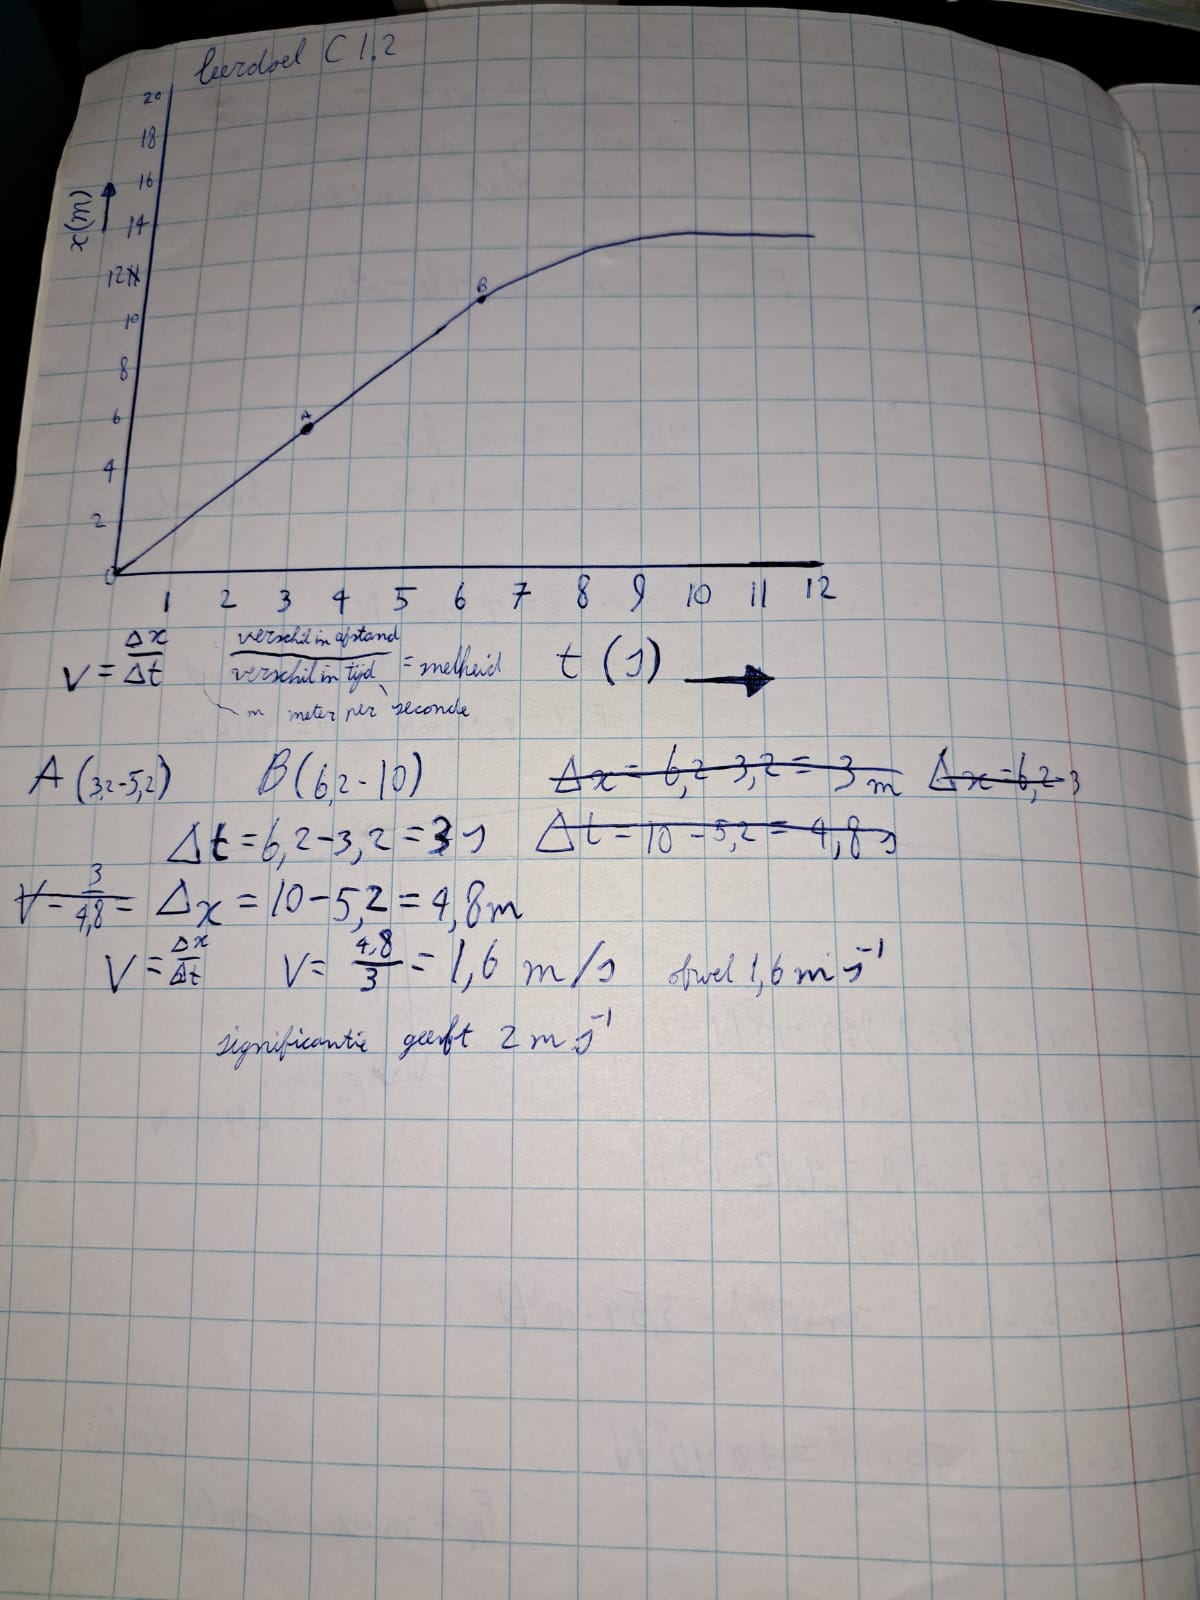 leerdoel C 1,2
20
18
16
x(m)
14
12
10
8
6
4
2
0
A
B
1 2 3 4 5 6 7 8 9 10 11 12
t (s)
v = Δx/Δt verschil in afstand / verschil in tijd = snelheid
m meter per seconde
A (3,2-5,2) B (6,2-10) Δx = 6,2-3,2 = 3 m Δx = 6,2-3
Δt = 6,2-3,2 = 3 s Δt = 10-5,2 = 4,8 s
V = 3/4,8 = Δx = 10-5,2 = 4,8 m
V = Δx/Δt V = 4,8/3 = 1,6 m/s ofwel 1,6 m s⁻¹
significantie geeft 2 m s⁻¹